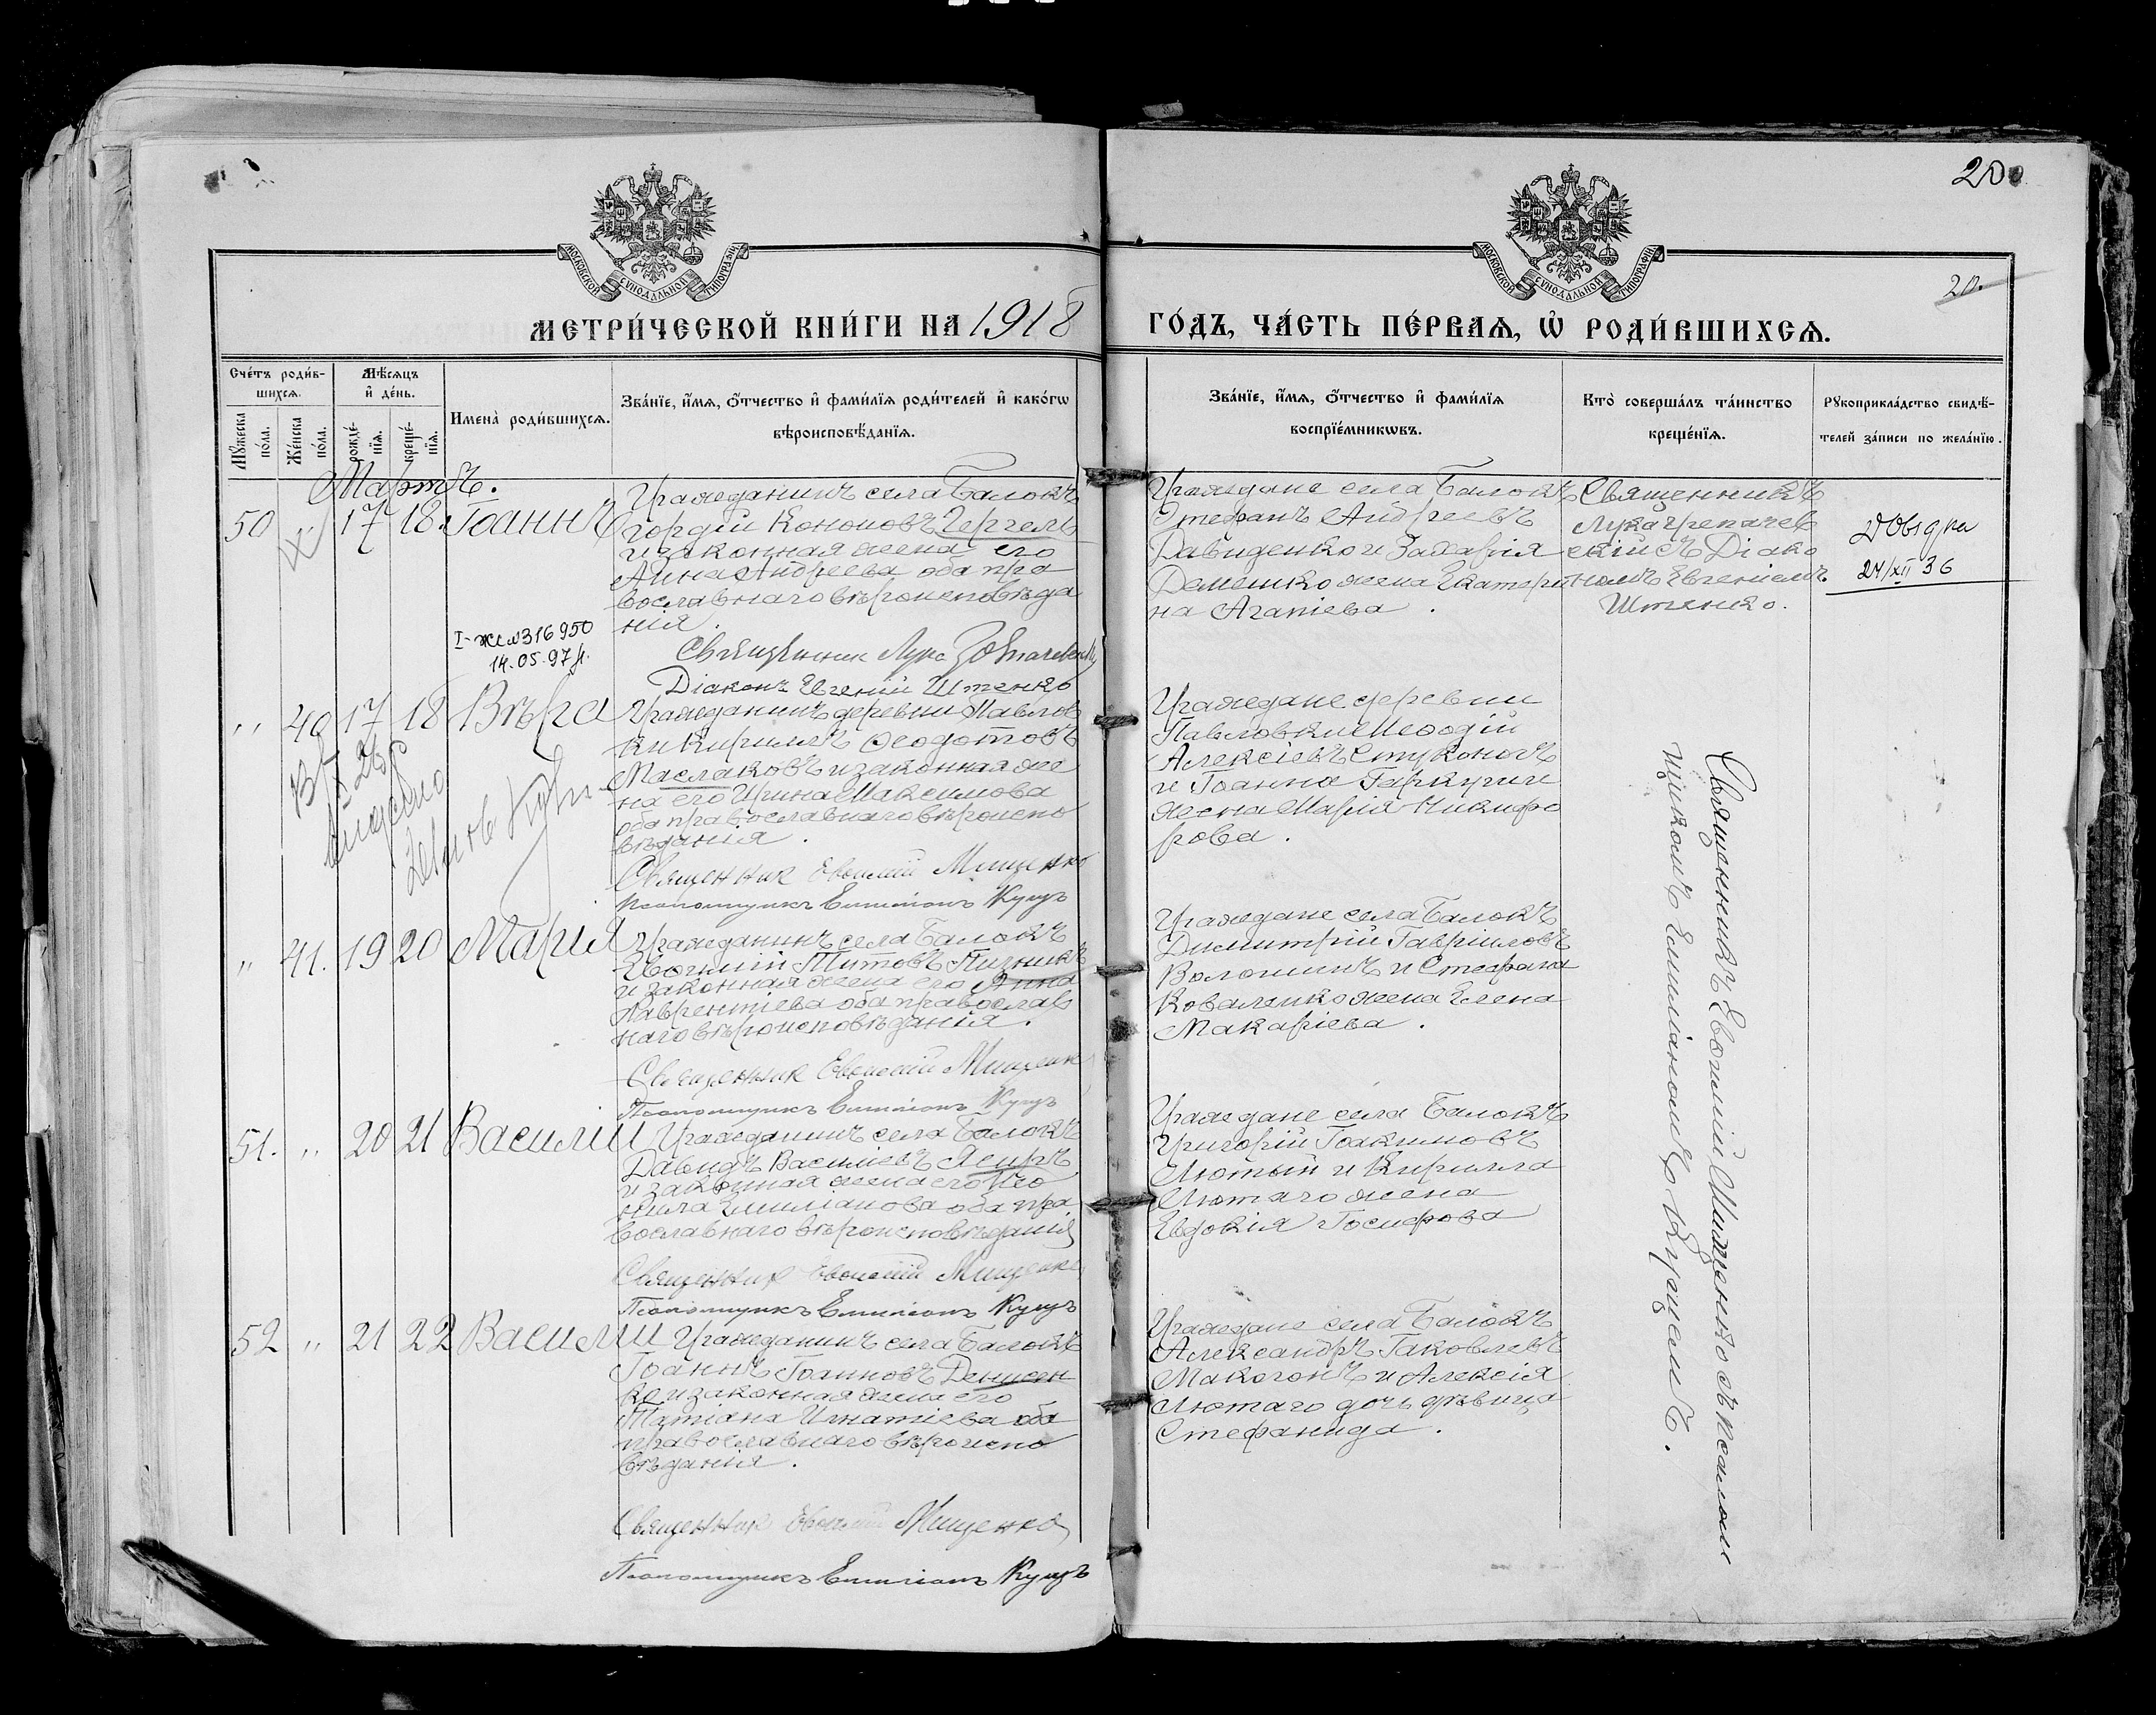 200
20.
МОСКОВСКОЙ СѴНОДАЛЬНОЙ ТИПОГРАФІИ
МОСКОВСКОЙ СѴНОДАЛЬНОЙ ТИПОГРАФІИ
МЕТРИ́ЧЕСКОЙ КНИ́ГИ НА 1918
ГО́ДЪ, ЧА́СТЬ ПЕ́РВАѦ, Ѡ҆ РОДИ́ВШИХСѦ.
Сче́тъ роди́в-
шихсѧ.
Мꙋ́жеска по́ла.
Же́нска по́ла.
Мѣ́сяцъ
и҆ де́нь.
рожде́нїѧ.
креще́нїѧ.
Имена̀ роди́вшихсѧ.
Зва́нїе, и҆́мѧ, ѻ҆́тчество и҆ фами́лїѧ роди́телей и҆ како́гѡ
вѣроисповѣ́данїѧ.
Зва́нїе, и҆́мѧ, ѻ҆́тчество и҆ фами́лїѧ
воспрїе́мникѡвъ.
Кто̀ соверша́лъ та́инство
креще́нїѧ.
Рꙋкоприкла́дство свидѣ́-
телей за́писи по жела́нїю.
Мартъ.
50 " 17 18 Іоаннъ
Гражданинъ села Балокъ
Гордій Кононовъ Гергель
и законная жена его
Анна Андреева оба пра
вославнаго вѣроисповѣда
нія.
Священник Лука
Діаконъ Евгеній Штенко
Граждане села Балокъ
Стефанъ Андреевъ
Давиденко и Захарія
Демешко жена Екатери
на Агапіева.
Священникъ
Лука
скій съ Діако
номъ Евгеніемъ
Штенко.
24/XII 36
I-ЖС №316950
14.05.97р.
" 40 17 18 Вѣра
Гражданинъ деревни Павлов
ки Кириллъ Ѳеодотовъ
Маслаковъ и законная же
на его Ирина Максимова
оба православнаго вѣроиспо
вѣданія.
Священник Евѳимій Мищенко
Псаломщикъ Емиліанъ Кущъ
Граждане деревни
Павловки Меѳодій
Алексіевъ Стуконогъ
и Іоанна Гаркуши
жена Марія Никифо
рова.
" 41. 19 20 Марія
Гражданинъ села Балокъ
Евѳимій Титовъ
и законная жена его Анна
Лаврентіева оба православ
наго вѣроисповѣданія.
Священник Евѳимій Мищенко
Псаломщикъ Емиліанъ Кущъ
Граждане села Балокъ
Димитрій Гавріиловъ
Волошинъ и Стефана
Коваленко жена Елена
Макаріева.
51. " 20 21 Василій
Гражданинъ села Балокъ
Давидъ Василіевъ
и законная жена его Нео
нила Емиліанова оба пра
вославнаго вѣроисповѣданія
Священник Евѳимій Мищенко
Псаломщикъ Емиліанъ Кущъ
Граждане села Балокъ
Григорій Іоакимовъ
Лютый и Кирилла
Лютаго жена
Евдокія Іосифова
52 " 21 22 Василій
Гражданинъ села Балокъ
Іоаннъ Іоанновъ Демшен
ко и законная жена его
Татіана Игнатіева оба
православнаго вѣроиспо
вѣданія.
Священник Евѳимій Мищенко
Псаломщикъ Емиліанъ Кущъ
Граждане села Балокъ
Александръ Іаковлевъ
Макогонъ и Алексія
Лютаго дочь дѣвица
Стефанида.
Священникъ Евѳимій Мищенко съ псалом
щикомъ Емиліаномъ Кущемъ.